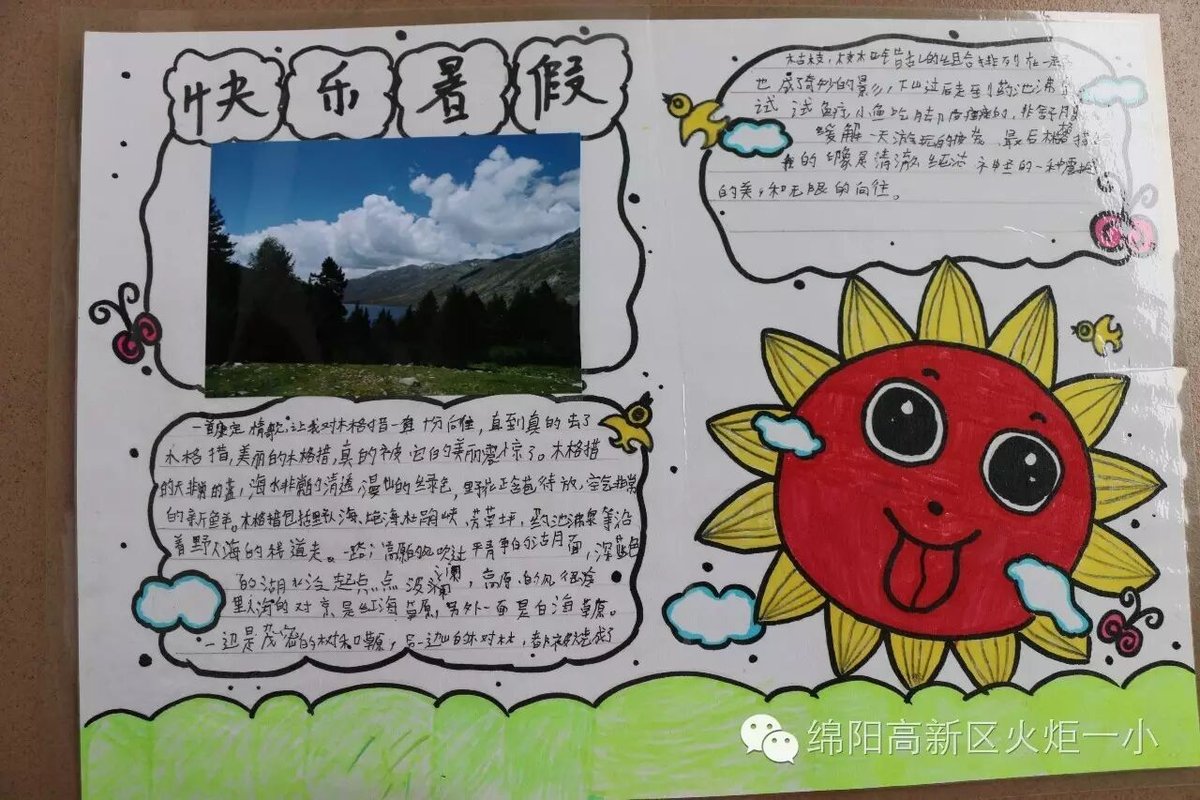 快乐暑假
一首康定情歌,让我对木格措一直十分向往,直到真的去了
木格措,美丽的木格措,真的被它的美丽震惊了。木格措
的天非常的蓝,海水非常的清透,漫山的绿色,野花正含苞待放,空气非常
的新鲜。木格措包括野人海、杜鹃峡、芳草坪,药池沸泉等沿
着野人海的栈道走。一路高原的风吹过平静的湖面,深蓝色
的湖水泛起点点波澜,高原的风很凉
野人海的对京是红海草原,另外一面是白海草原。
一边是茂密的树和草原,另一边山的林对林,都被烧成了
枯枝,的组合排列在一
也成了奇妙的景,下山过后走到药池沸
试试鱼疗,小鱼吃脚,非舒服
缓解一天游玩的疲劳,最后木格措
我的印象是清澈纯洁,的一种震撼
的美,和无限的向往。
绵阳高新区火炬一小